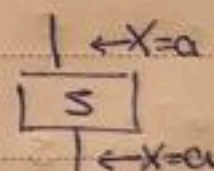 ←X=a
S
←X=a